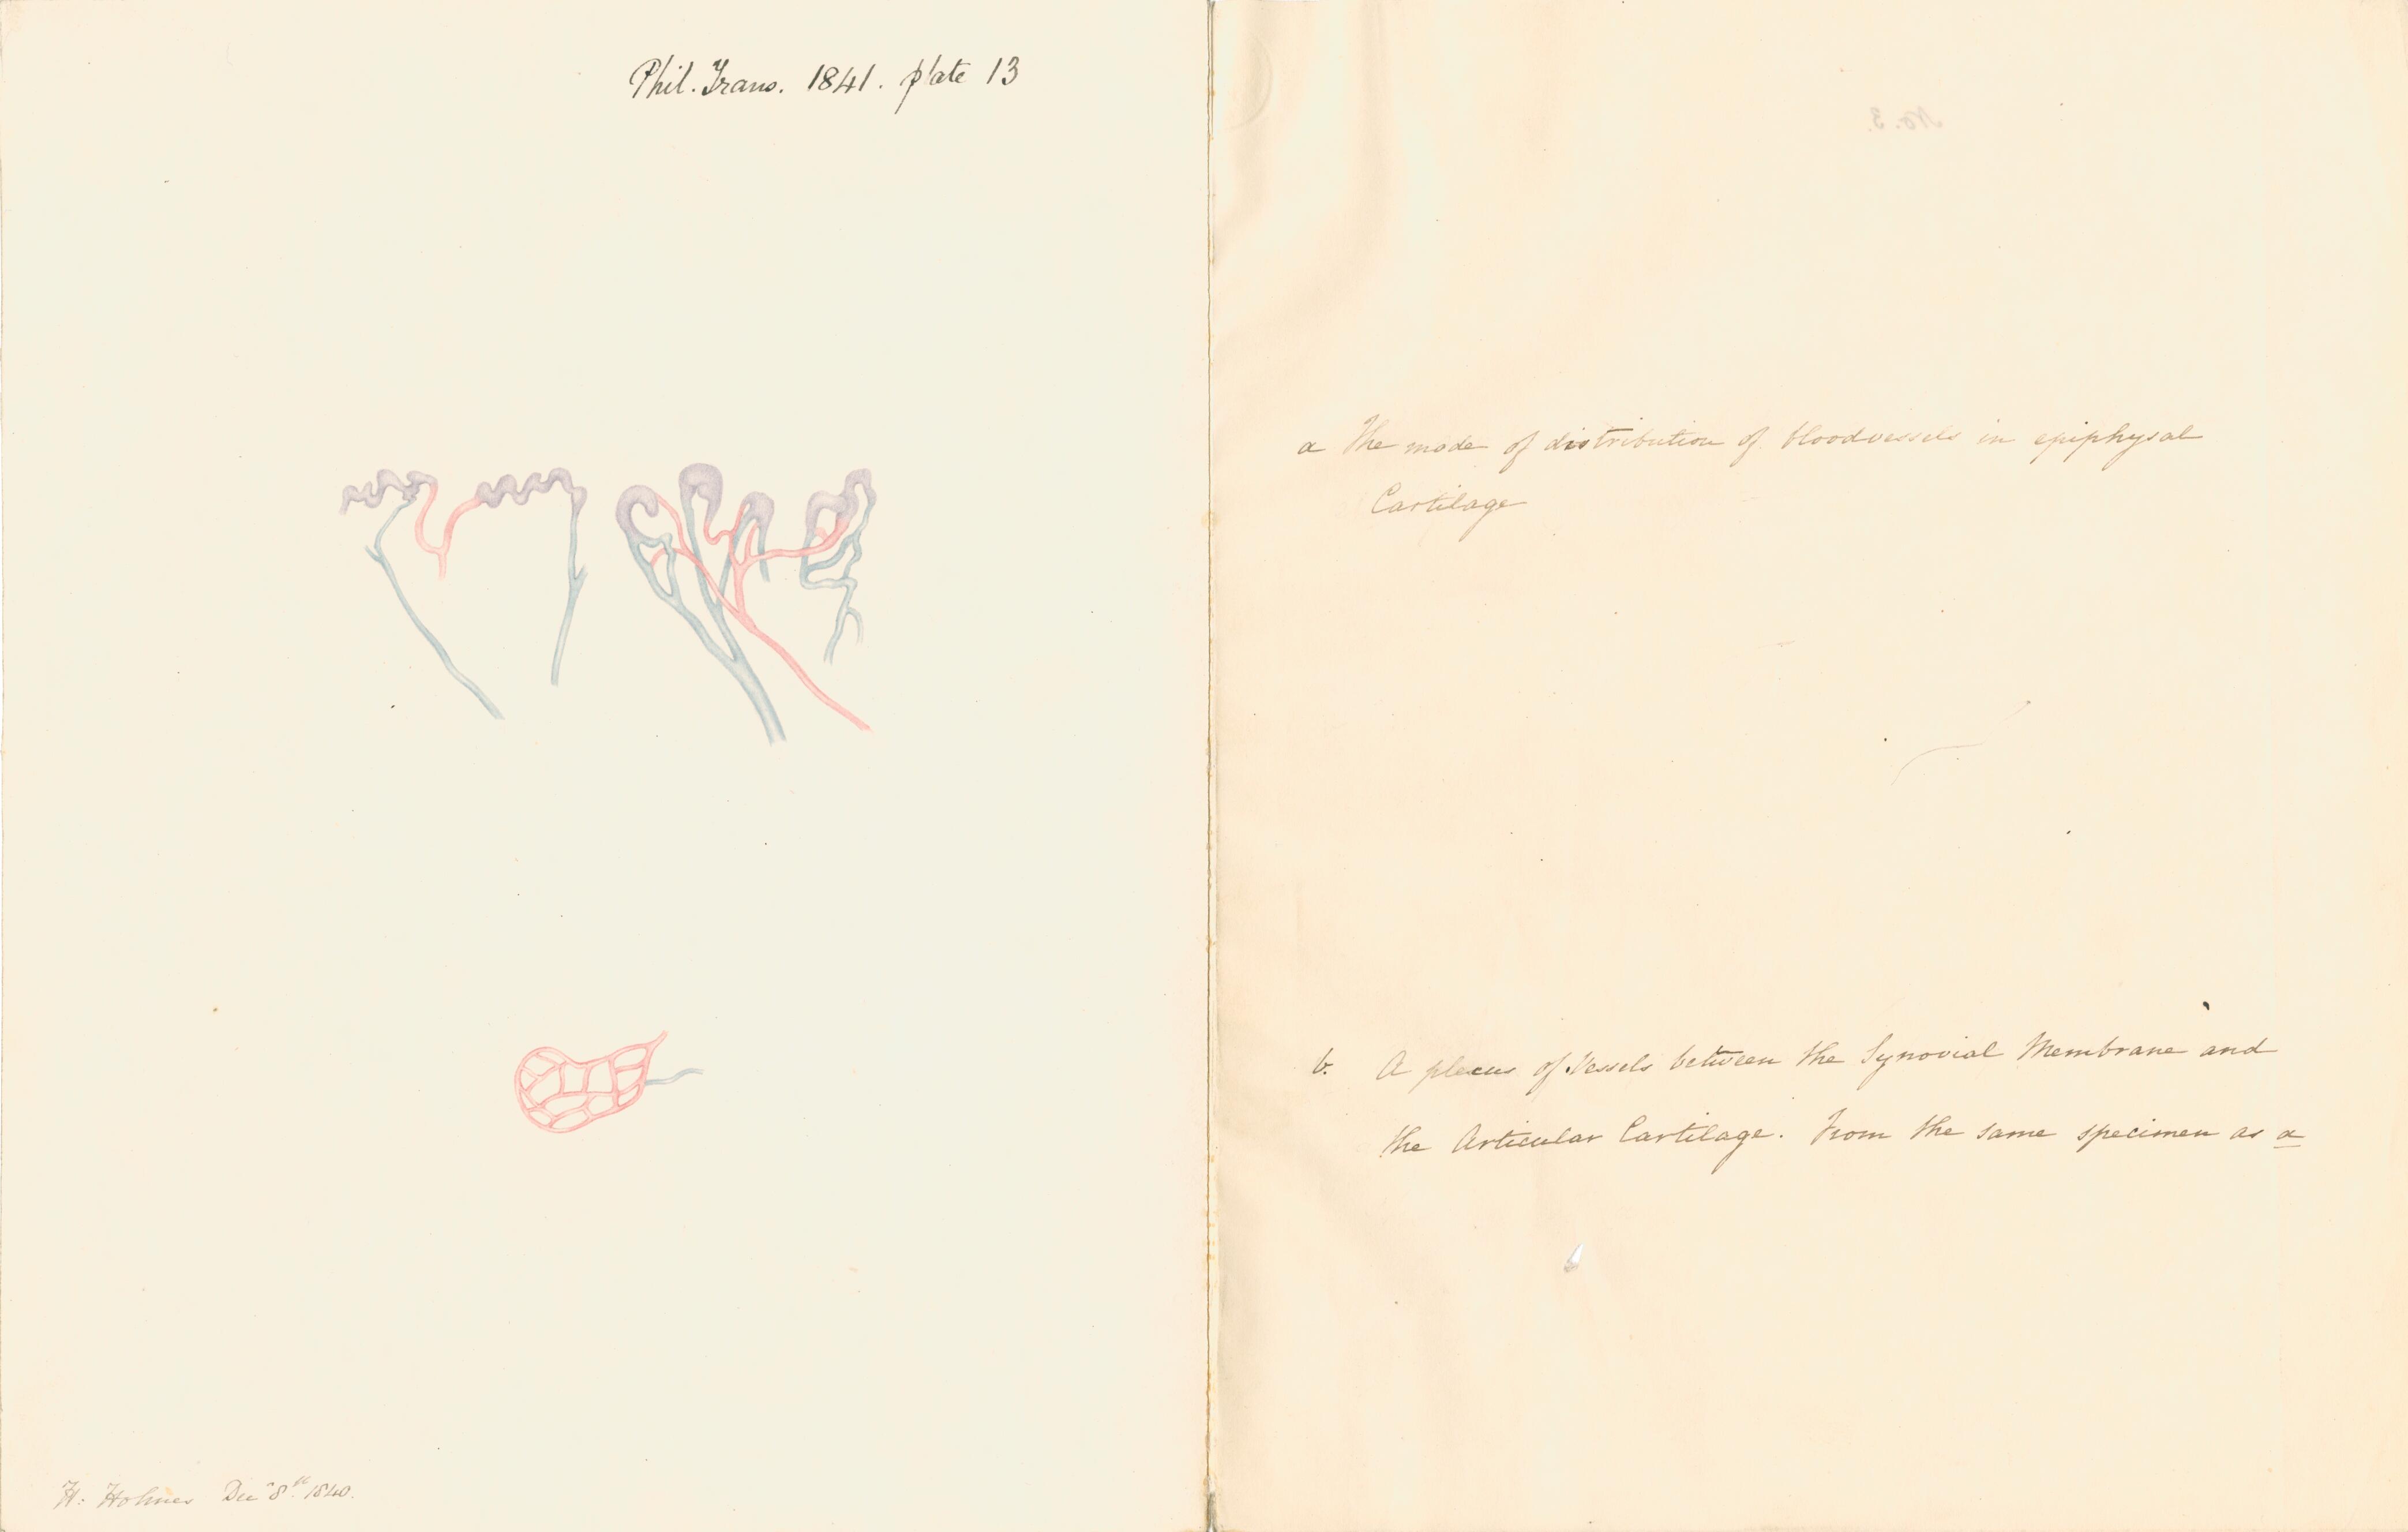 Phil. Trans. 1841. plate 13
H. Holmes Dec 8th 1840.
No. 3.
a The mode of distribution of bloodvessels in epiphysal
Cartilage
b. A plexus of Vessels between the Synovial Membrane and
the Articular Cartilage. From the same specimen as a